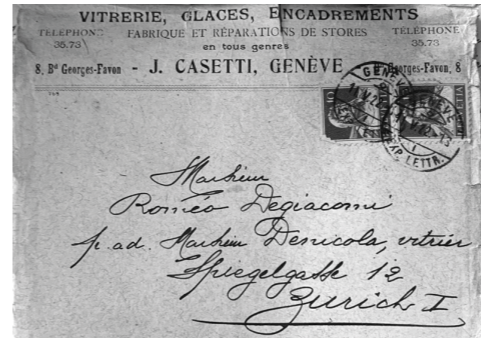 VITRERIE, GLACES, ENCADREMENTS
TÉLÉPHONE FABRIQUE ET RÉPARATIONS DE STORES TÉLÉPHONE
35.73 en tous genres 35.73
8, Bd Georges-Favon - J. CASETTI, GENÈVE - Georges-Favon, 8
GENÈVE
EXP. LETTR.
Monsieur
Roméo Degiacomi
p. ad. Monsieur Denicola, vitrier
Spiegelgasse 12
Zurich I